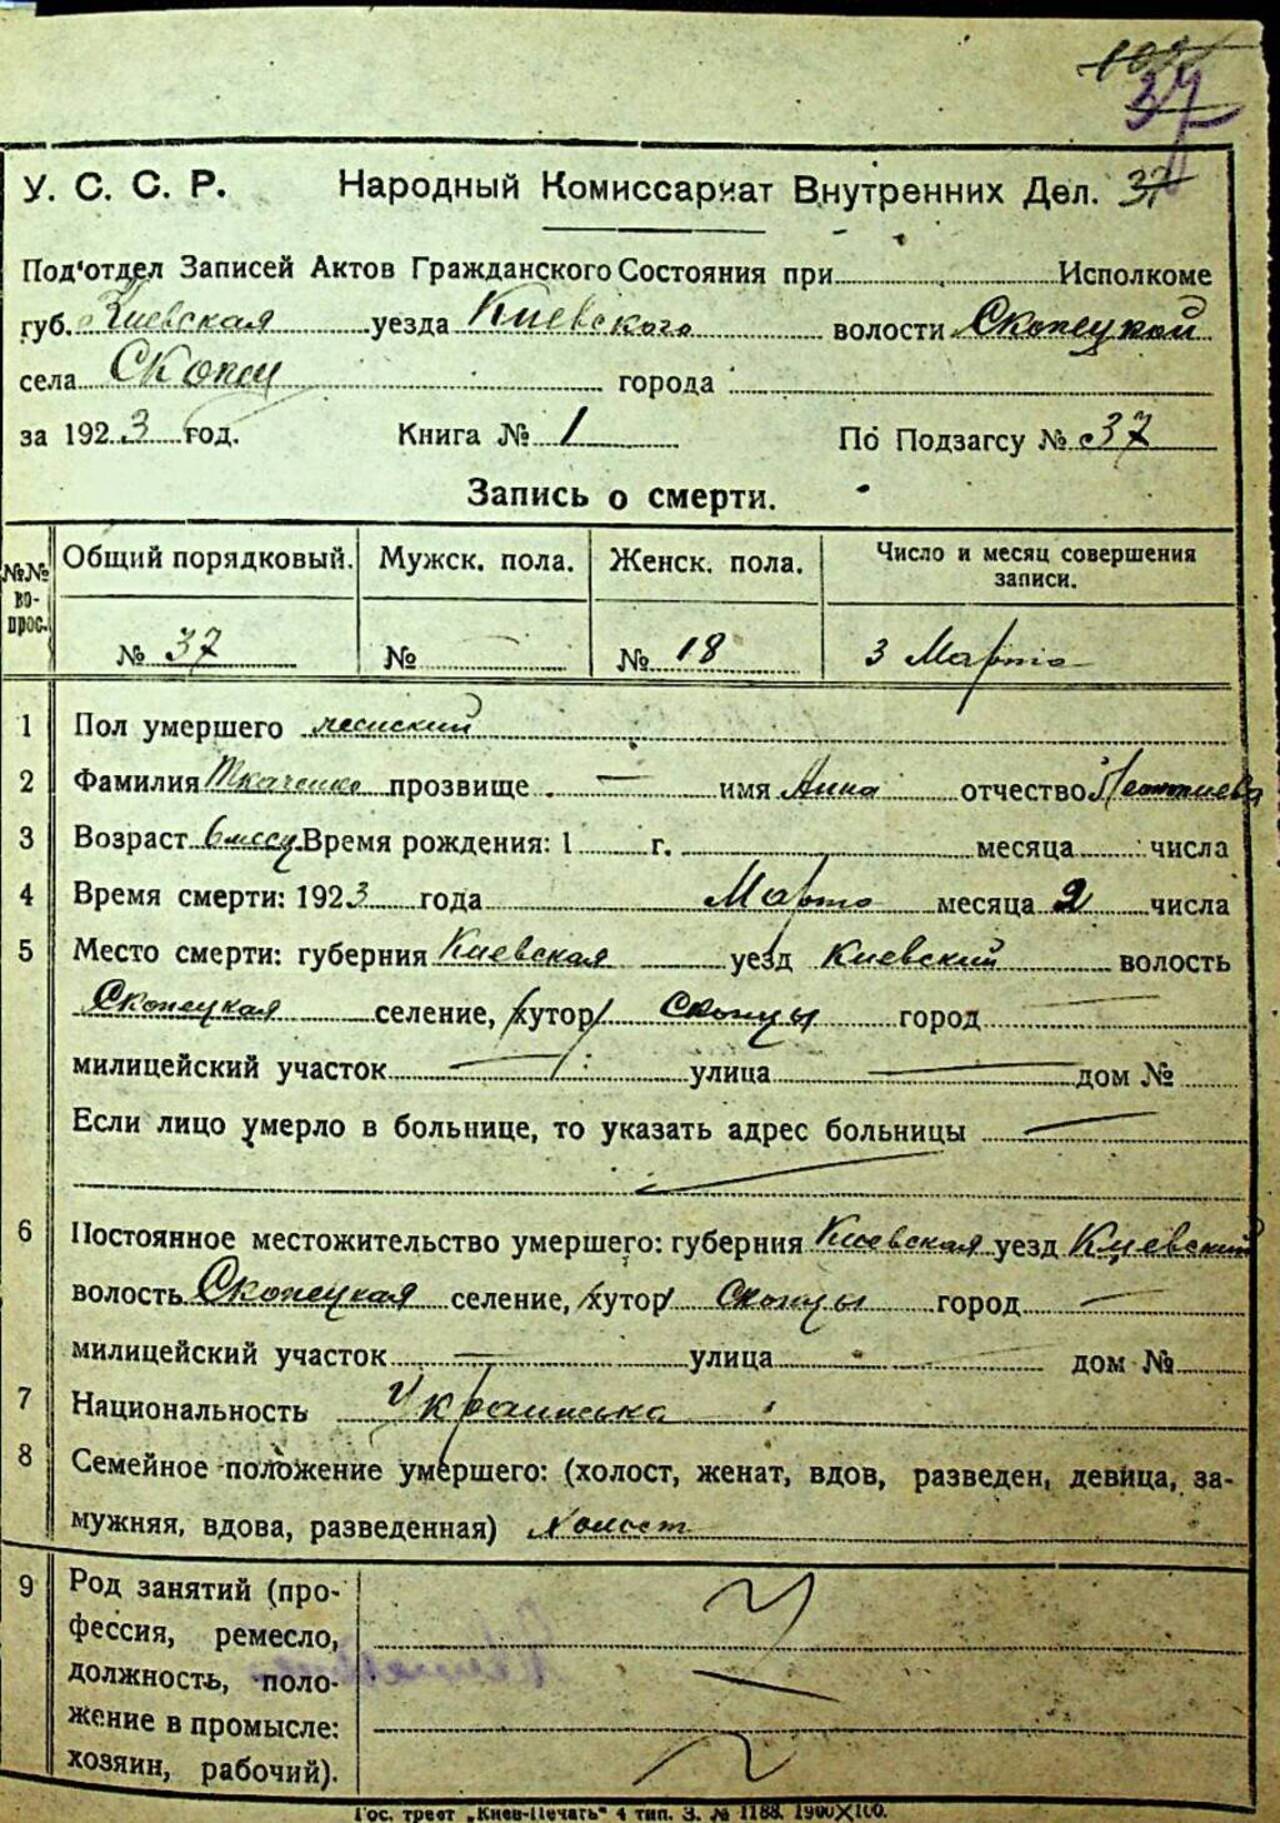 109
37
У. С. С. Р. Народный Комиссариат Внутренних Дел. 37
Под'отдел Записей Актов Гражданского Состояния при Исполкоме
губ. Киевская уезда Киевского волости Скопецкой
села Скопцы города
за 1923 год. Книга № 1 По Подзагсу № 37
Запись о смерти.
№№ вопрос. Общий порядковый. Мужск. пола. Женск. пола. Число и месяц совершения записи.
№ 37 № — № 18 3 Марта
1 Пол умершего женский
2 Фамилия Ткаченко прозвище — имя Анна отчество Леонтиева
3 Возраст 6 месц Время рождения: 1 г. месяца числа
4 Время смерти: 1923 года Марта месяца 2 числа
5 Место смерти: губерния Киевская уезд Киевский волость
Скопецкая селение, хутор Скопцы город —
милицейский участок — улица — дом №
Если лицо умерло в больнице, то указать адрес больницы —
6 Постоянное местожительство умершего: губерния Киевская уезд Киевский
волость Скопецкая селение, хутор Скопцы город —
милицейский участок — улица — дом №
7 Национальность Украинська
8 Семейное положение умершего: (холост, женат, вдов, разведен, девица, за-
мужняя, вдова, разведенная) Холост
9 Род занятий (про-
фессия, ремесло,
должность, поло-
жение в промысле:
хозяин, рабочий).
Гос. трест „Киев-Печать" 4 тип. З. № 1188. 1900X100.